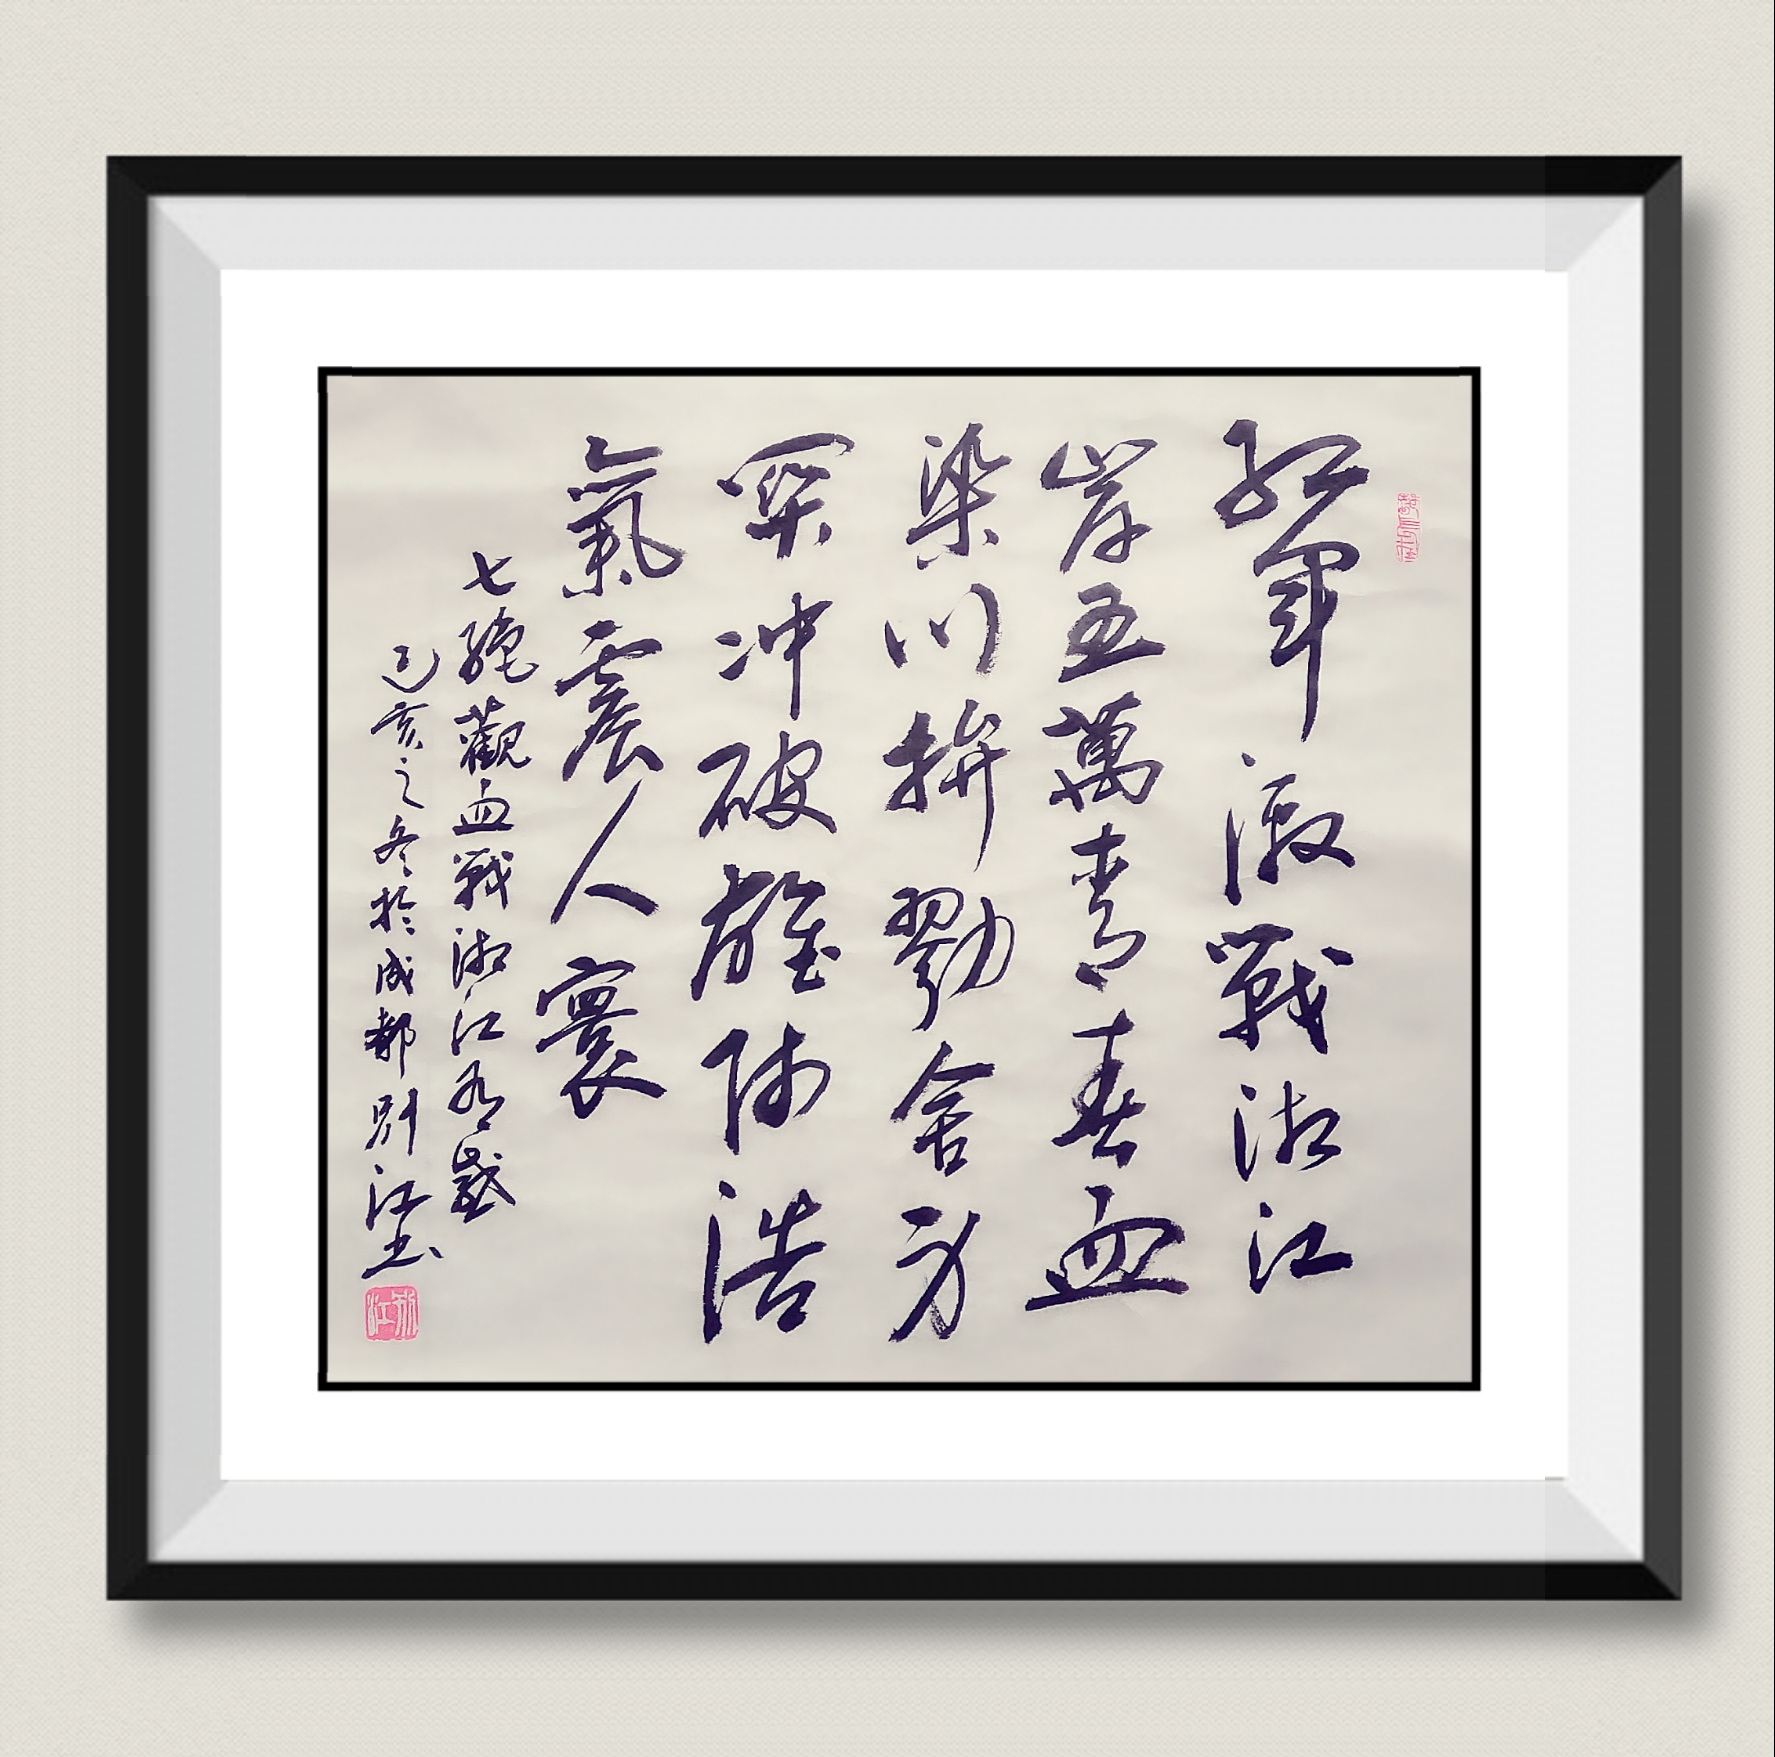 紅軍激戰湘江
岸五萬青春血
染川拚勠舍身
突冲破雄师浩
氣震人寰
七絕觀血戰湘江有感
己亥之冬於成都江書